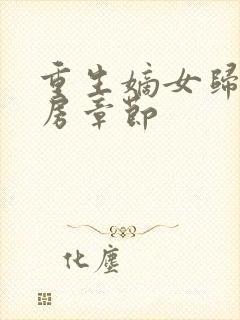 重生嫡女歸
房章節
化塵